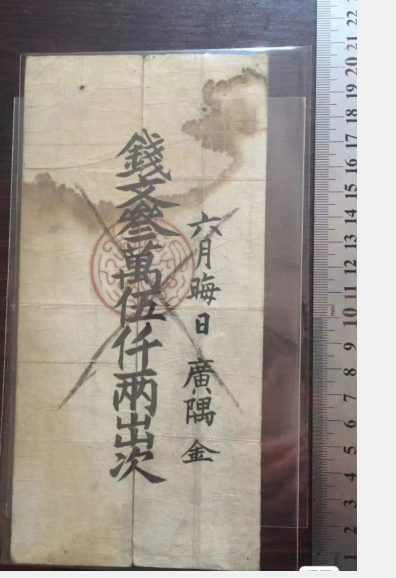 六月晦日 廣隅金
錢文叄萬伍仟兩出次
1 2 3 4 5 6 7 8 9 10 11 12 13 14 15 16 17 18 19 20 21 22